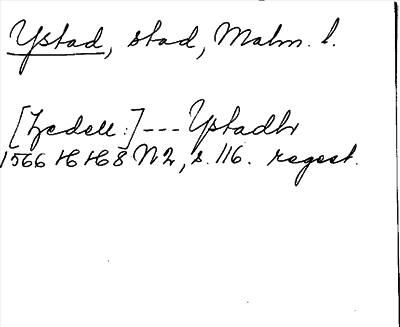 Ystad, stad, Malm. l.
[Zedell:] --- Ystadh
1566 HH8 N2, s. 116. regest.